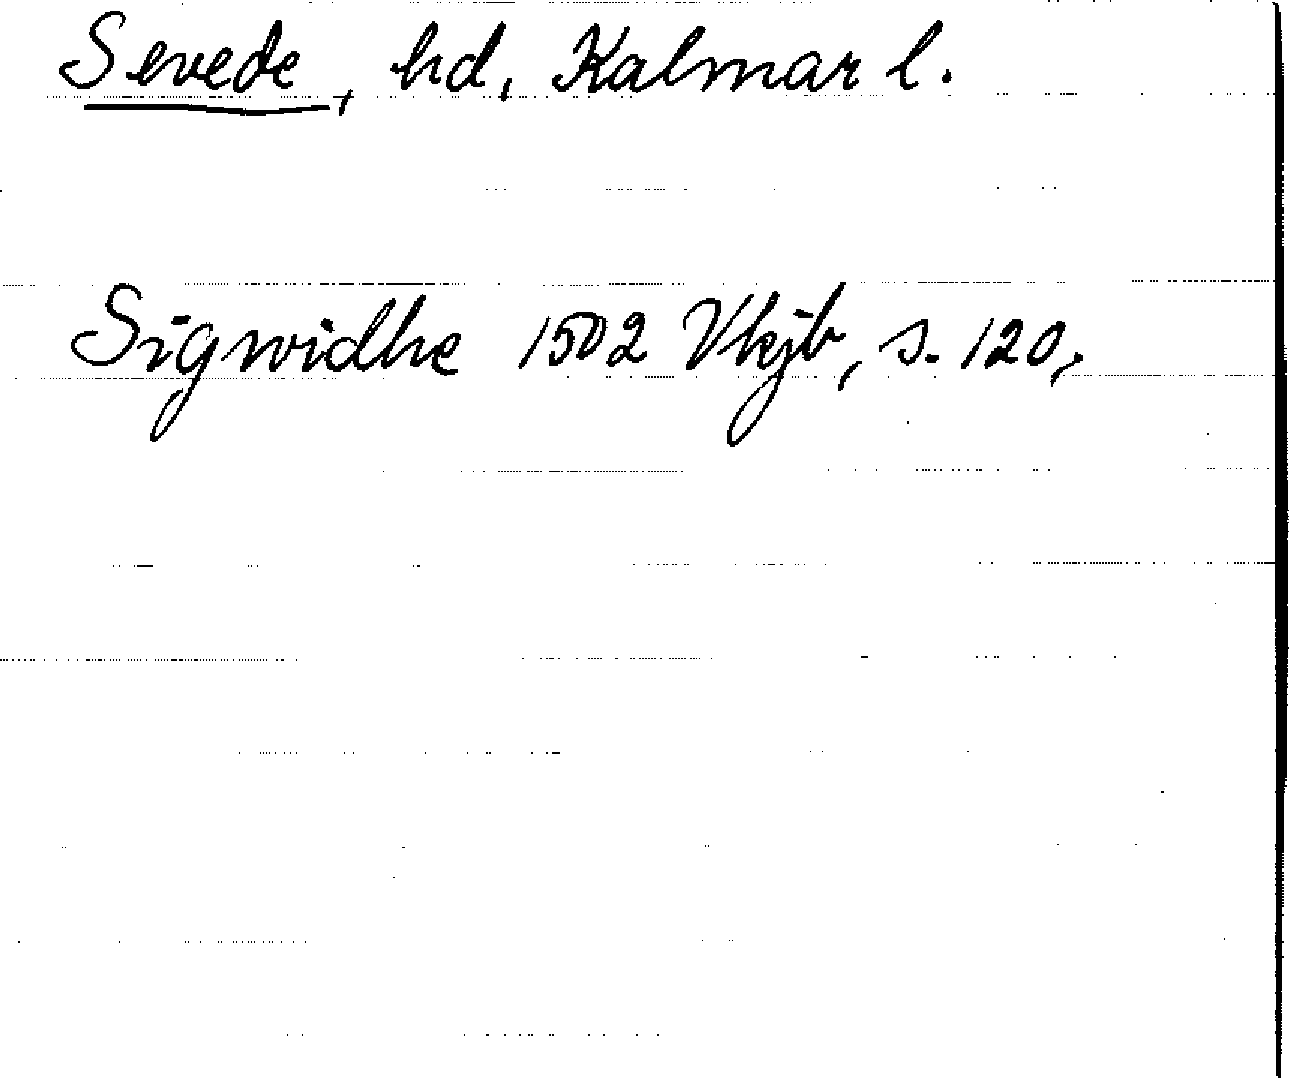 Sevede, hd, Kalmar l.
Sigwidhe 1502 Vkjb, s. 120,